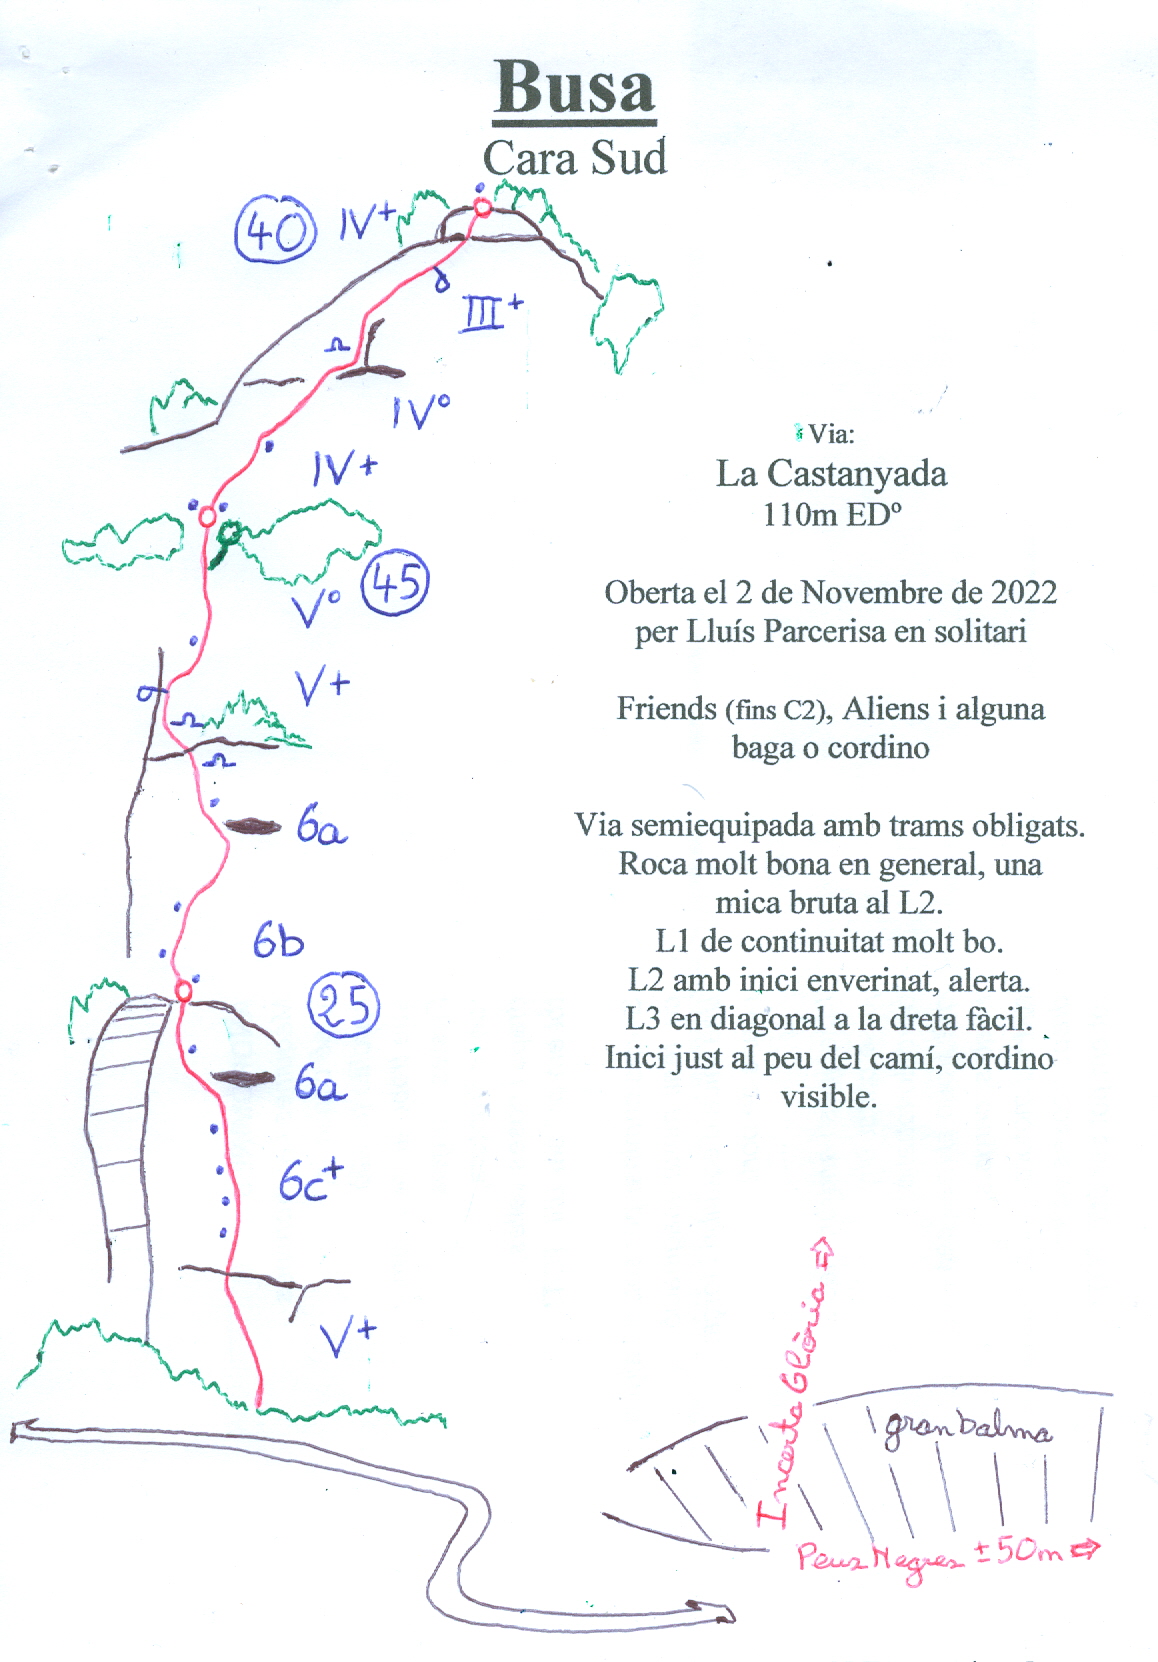 Busa
Cara Sud
40 IV+
III+
IVº
IV+
45
Vº
V+
6a
6b
25
6a
6c+
V+
Via:
La Castanyada
110m EDº
Oberta el 2 de Novembre de 2022
per Lluís Parcerisa en solitari
Friends (fins C2), Aliens i alguna
baga o cordino
Via semiequipada amb trams obligats.
Roca molt bona en general, una
mica bruta al L2.
L1 de continuitat molt bo.
L2 amb inici enverinat, alerta.
L3 en diagonal a la dreta fàcil.
Inici just al peu del camí, cordino
visible.
Incerta Glòria ⇨
gran balma
Peus Negres ±50m ⇨